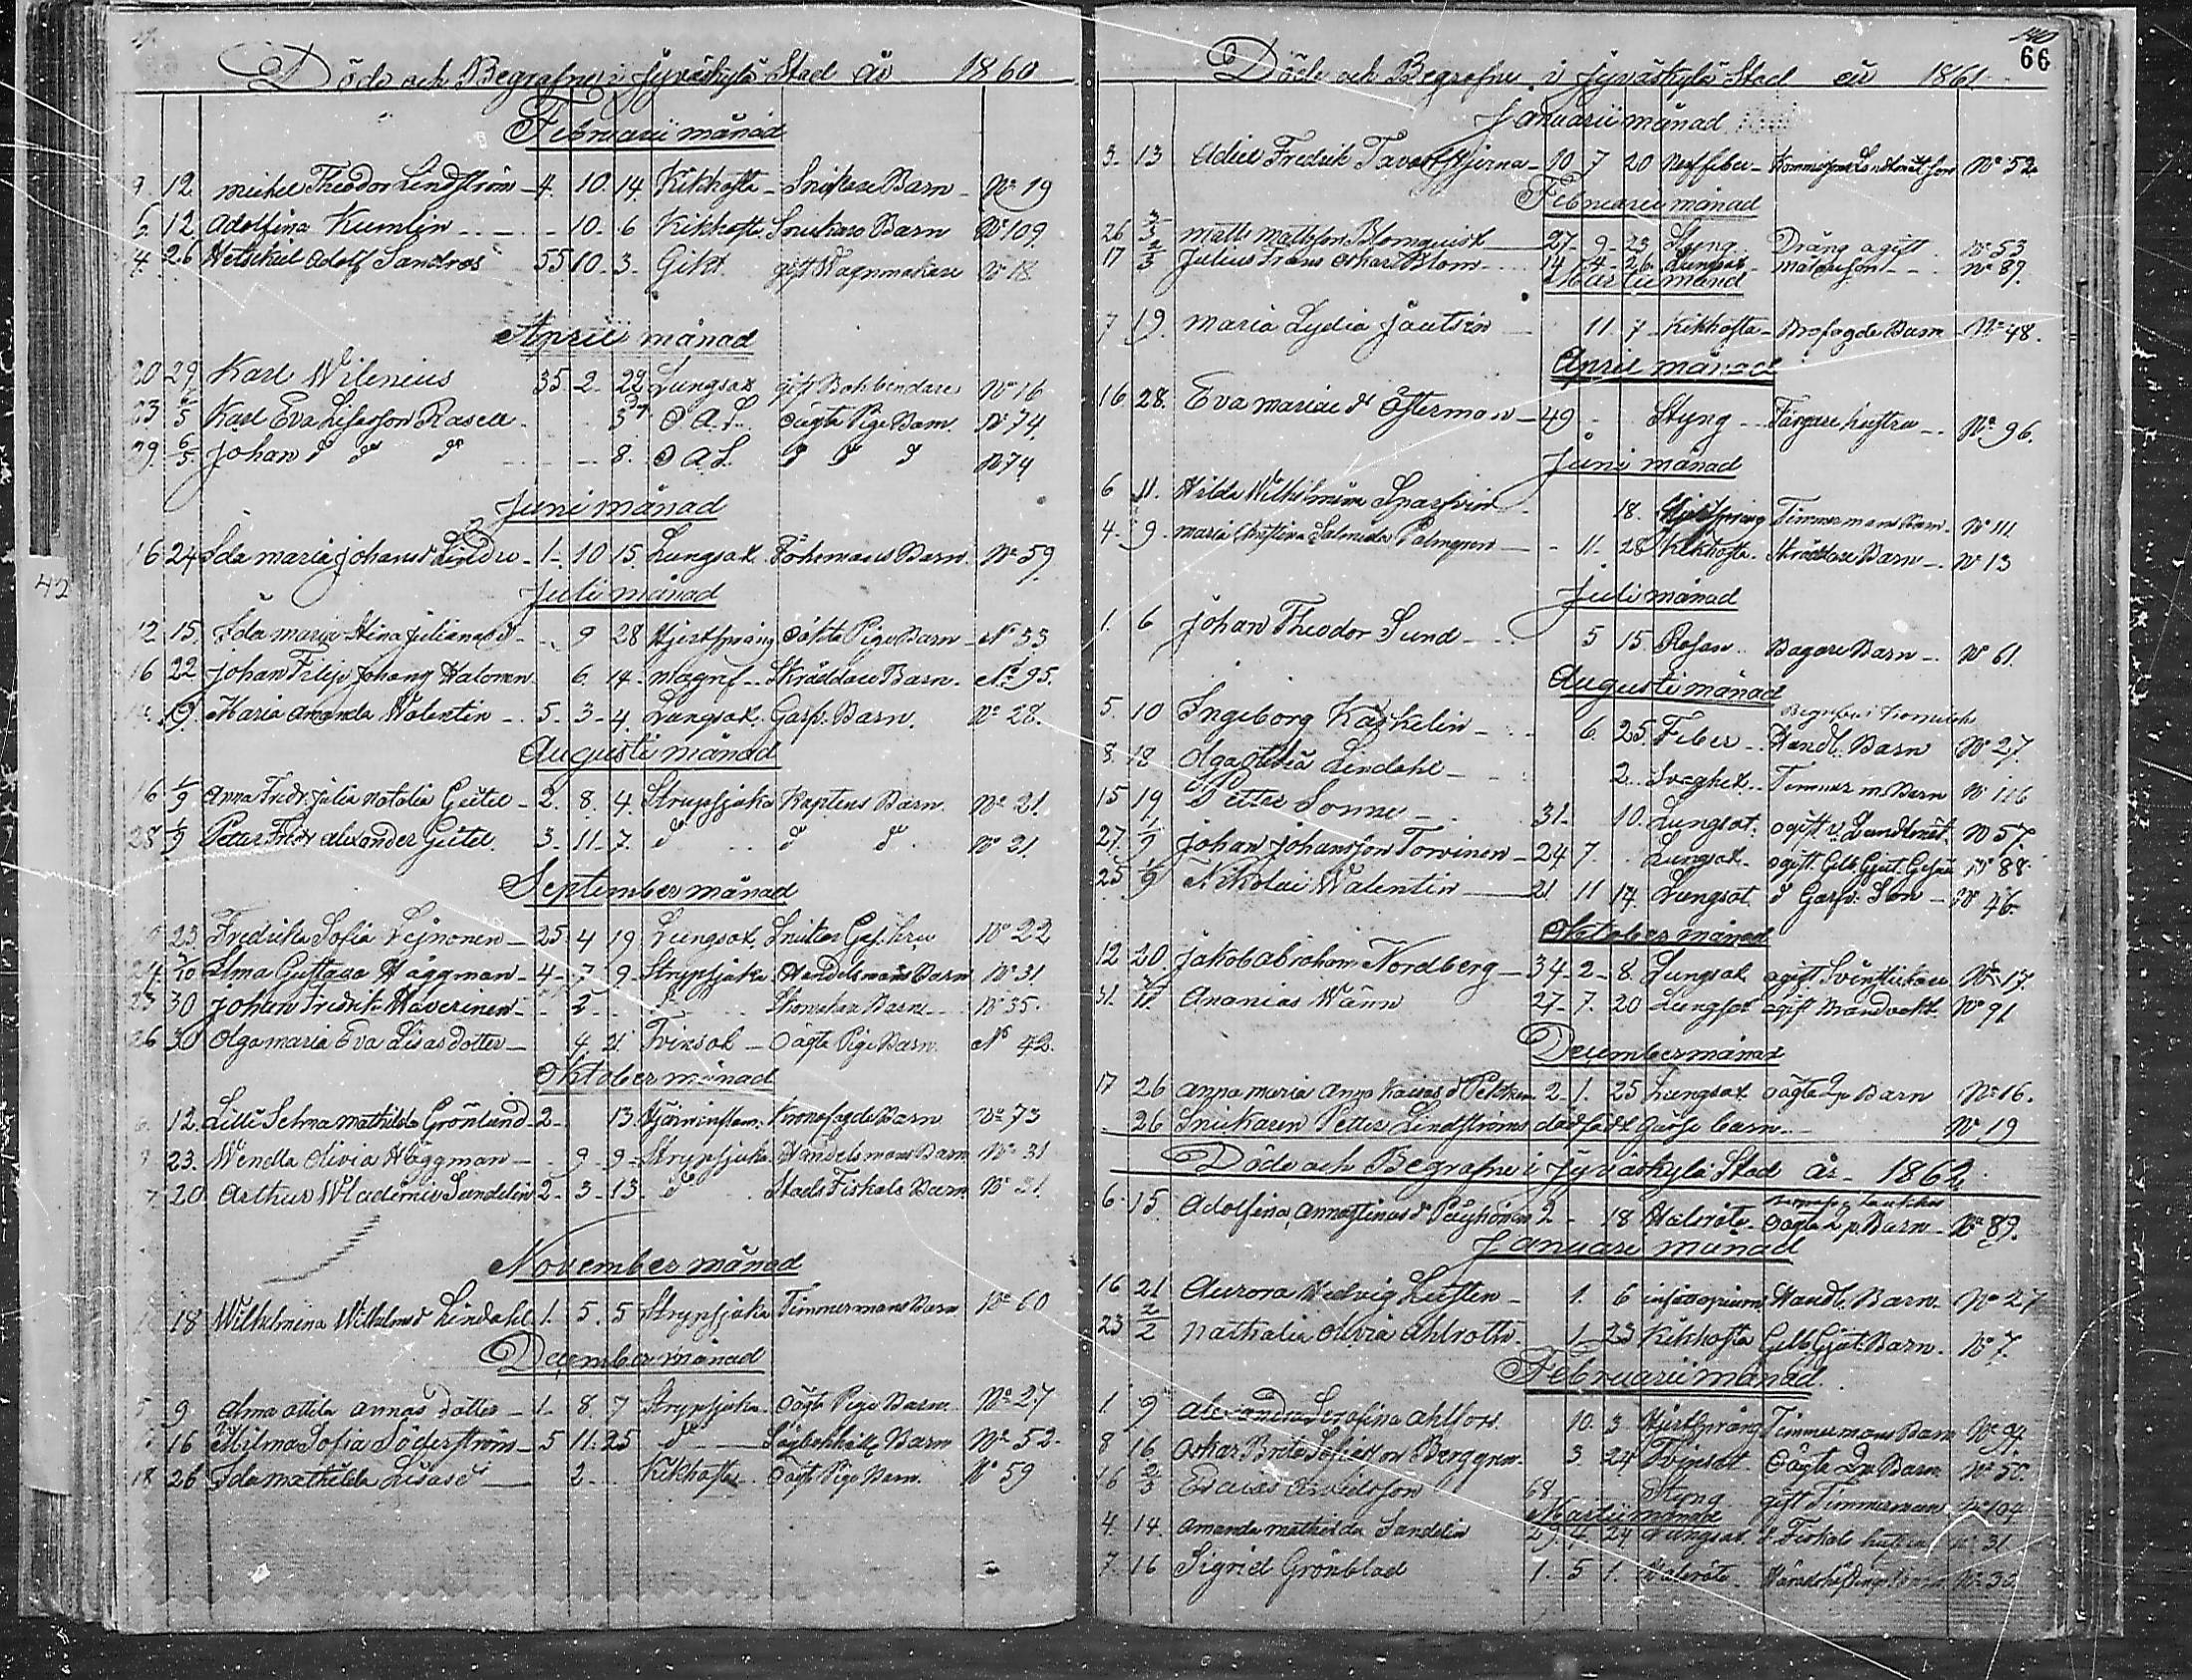 Döde och Begrafne i Jyväskylä Stad år 1860
Februarii månad
9. 12 Michel Theodor Lindström 4. 10. 14. Kikhosta Snikare Barn No 19
6 12 Adolfina Kumlin 10 6 Kikhosta Snikare Barn No 109
4. 26 Hetskiel Adolf Sandros 55 10 3 Gikt gift Wagnmakare No 18
April månad
20 29 Karl Wilenius 35 2 22 Lungsot gift Bokbindare No 16
23 6/5 Karl Eva Lisasson Rasea 3 O.A.L. oägta Pige Barn No 74
29 6/5 Johan d d d 8. O.A.L. d d d No 74
Juni månad
16 24 Ida Maria Johansd Lindru 1 10 15 Lungsot Barn No 59
Juli månad
12 15 Ida Maria Stina Julianasd 9 28 Hjertsprång oäkta Pige Barn No 33
16 22 Johan Filip Johang Halonen 6. 14. Magref Skräddare Barn No 95.
19 Maria Amanda Walentin 5. 3 4. Lungsot Garfv. Barn. No 28.
Augusti månad
16 1/9 Anna Fredr. Julia Natalia Gütel 2. 8. 4. Strupsjuka Kaptens Barn. No 21.
28 1/9 Petter Fredr Alexander Gütel. 3. 11. 7. d d d No 21.
September månad
23 Fredrika Sofia Lejnonen 25 4 19 Lungsot Snikar Ges. hru No 22
Alma Gustava Häggman 4 7 9 Strypsjuka Handelsmans Barn No 31
23 30 Johan Fredrik Haverinen 2 Skomakar Barn No 35.
26 30 Olga Maria Eva Lisas dotter 4. 21. Tvinsot Oägta Pige Barn. No 42.
Oktober månad
12. Lilli Selma Mathilda Grönlund 2 13. Kronofogde Barn No 73
23. Wendla Olivia Häggman 9 9 Strypsjuka Handelsmans Barn No 31
7 20 Arthur Wladimir Sandelin 2 3 13. d Stads Fiskals Barn No 21.
November månad
18 Wilhelmina Wilhelmsd Lindahl 1. 5. 5 Strypsjuka Timmermans Barn No 60
December månad
9. Alma Ottila Annas dotter 1 8. 7 Strypsjuka Oägta Pige Barn No 27
16 Hilma Sofia Söderström 5 11. 25 d Barn No 52.
18 26 Ida Mathilda Lisasd 2 Kikhosta Oägt Pige Barn. No 59
66
Döde och Begrafne i Jyväskylä Stad år 1861
Januarii månad
3. 13 Adiel Fredrik Tavaststjerna 10 7 20 Nerffeber No 52
Februarii månad
26 3/3 Matts Mattsson Blomquist 27 9 23 Styng Dräng ogift No 53
17 3/3 Julius Frans Oskar Blom 14 4 26 Lungsot No 87.
Martii månad
7 19. Maria Lydia Jantsén 11 7 Kikhosta Barn No 48.
April månad
16 28. Eva Mariae d Österman 49 Styng Färgare hustru No 96.
Juni månad
6 11. Hilda Wilhelmina Sparfvin 18. Hjertsprång Timmermans Barn No 111
4. 9. Maria Christina Salmida Palmgren 11. 28 Kikhosta Skräddare Barn No 13
Juli månad
1. 6 Johan Theodor Sund 5 15 Rosen Bagare Barn No 61.
Augusti månad
5. 10 Ingeborg Käskelin 6. 25. Feber Handl. Barn No 27.
8. 18 Olga Otilia Lindahl 2 Svaghet Timmer m. Barn No 116
15 19 Petter Sonne 31 10. Lungsot. ogift No 57.
27. 1/9 Johan Johansson Torvinen 24 7 Lungsot ogift Gelb Gjut. Gesäll No 88
25 1/9 Nikolai Walentin 21 11 14. Lungsot d Garfv. Son No 46
Oktober månad
12 20. Jakob Abraham Nordberg 34 2 8. Lungsot ogift No 17.
31. Ananias Wänn 27 7. 20 Lungsot ogift Brandvakt No 91
December månad
17 26 Anna Maria Anna Kaisas d Pekkan 2 1. 25 Lungsot oägta Barn No 16.
26 Snikaren Petter Lindströms dödfödt gosse barn No 19
Döde och Begrafne i Jyväskylä Stad år 1862
6. 15. Adolfina Annastinas d Päyhönen 2 18 Halsröta Oägta Barn No 89.
Januari månad
16 21 Aurora Hedvig Lusten 1. 6 Handl. Barn. No 27
23 2/2 Nathalia Olivia Ahlroth 1 23 Kikhosta Gelb Gjut Barn. No 7.
Februarii månad
1 9 Alexandra Serafina Ahlfors 10. 3 Hjertsprång Timmermans Barn No 94
8 16 Oskar Brita Sofiasson Berggren 3. 24 Tvinsot Oägta Barn No 50.
16 2/3 Esaias Arvidsson 68 Styng gift Timmerman No 104
Martii månad
4. 14. Amanda Mathilda Sandelin 29. 4 24 Lungsot Fiskals hustru No 31
7. 16 Sigrid Grönblad 1. 5 1. Halsröta Häradshöfdinge Barn No 32
42